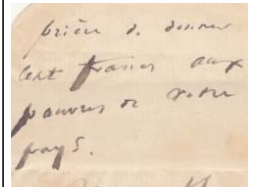 prière d. donner
cent francs aux
pauvres de votre
pays.